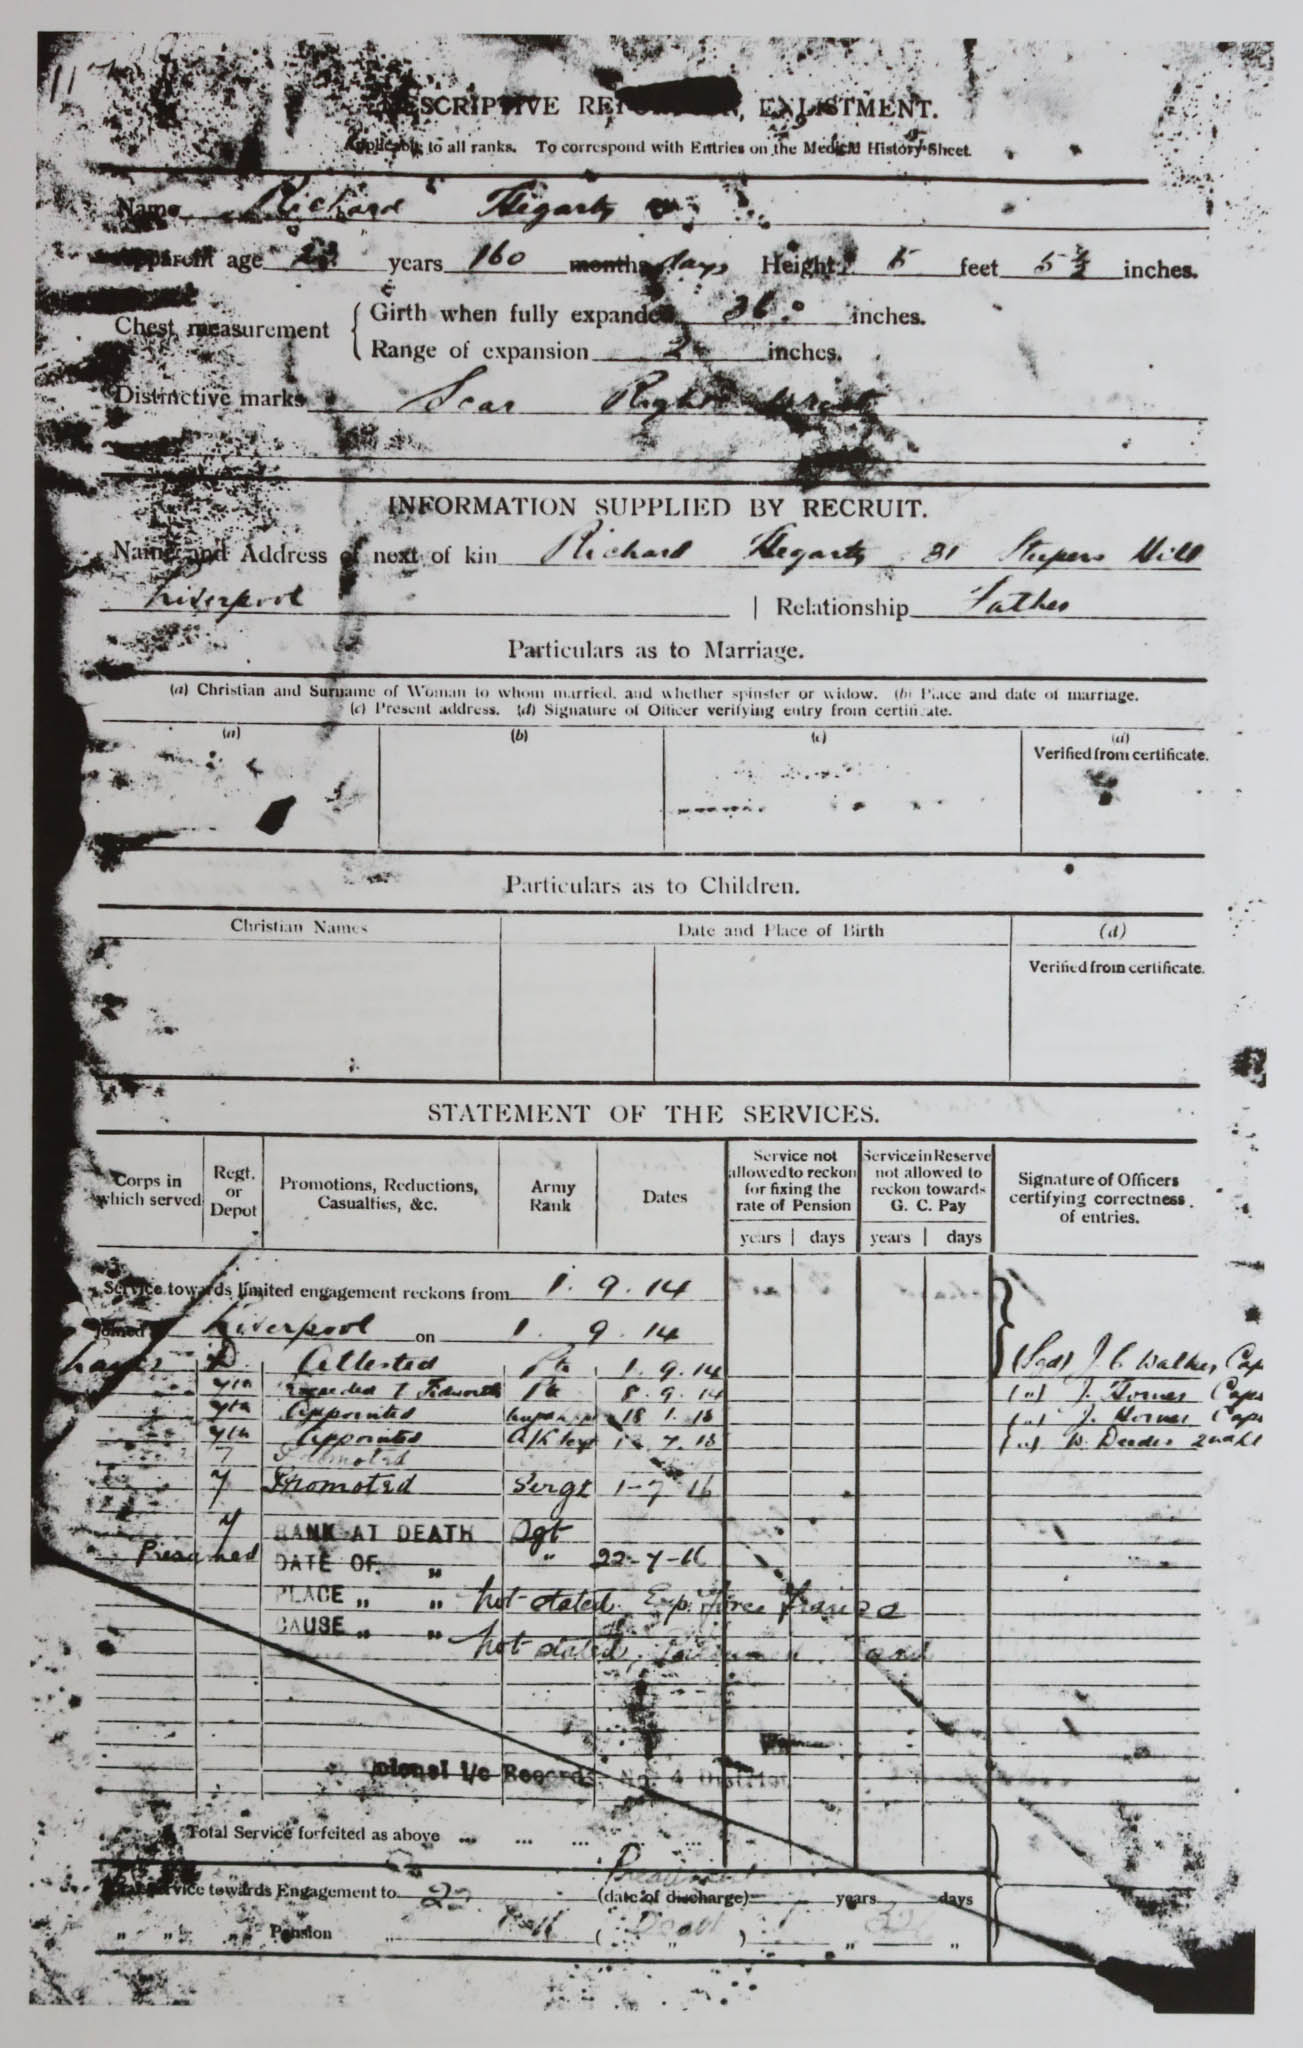 DESCRIPTIVE ENLISTMENT.
Applicable to all ranks. To correspond with Entries on the Medical History Sheet.
Name Richard Hegarty
Apparent age years 160 months days Height 5 feet 5 ½ inches.
Chest measurement
Girth when fully expanded 36 inches.
Range of expansion 2 inches.
Distinctive marks Scar Right Wrist
INFORMATION SUPPLIED BY RECRUIT.
Name and Address of next of kin Richard Hegarty 31 Hill
Liverpool | Relationship Father
Particulars as to Marriage.
(a) Christian and Surname of Woman to whom married, and whether spinster or widow. (b) Place and date of marriage.
(c) Present address. (d) Signature of Officer verifying entry from certificate.
(a) (b) (c) (d)
Verified from certificate.
Particulars as to Children.
Christian Names Date and Place of Birth (d)
Verified from certificate.
STATEMENT OF THE SERVICES.
Corps in which served Regt. or Depot Promotions, Reductions, Casualties, &c. Army Rank Dates Service not allowed to reckon for fixing the rate of Pension Service in Reserve not allowed to reckon towards G. C. Pay Signature of Officers certifying correctness of entries.
years days years days
Service towards limited engagement reckons from 1. 9. 14
Joined Liverpool on 1. 9. 14
D. Attested Pte 1. 9. 14 (Sgd) J. C. Walker, Cap
7th Tidworth Pte 8. 9. 14 (") J. Horner Capt
7th Appointed 18 1. 16 (") J. Horner Capt
7th Appointed 7. 16 (") W. 2nd Lt
7 Promoted
7 Promoted Sergt 1-7 16
7 RANK AT DEATH Sgt
Presumed DATE OF " " 22-7-16
PLACE " " not stated. Exp. Force France
CAUSE " " not stated, Presumed Dead
Colonel i/c Records, No. 4 District
Total Service forfeited as above ... ... ... ...
Presumed
Total Service towards Engagement to 22 (date of discharge) years days
" " " Pension " ( " ) " "